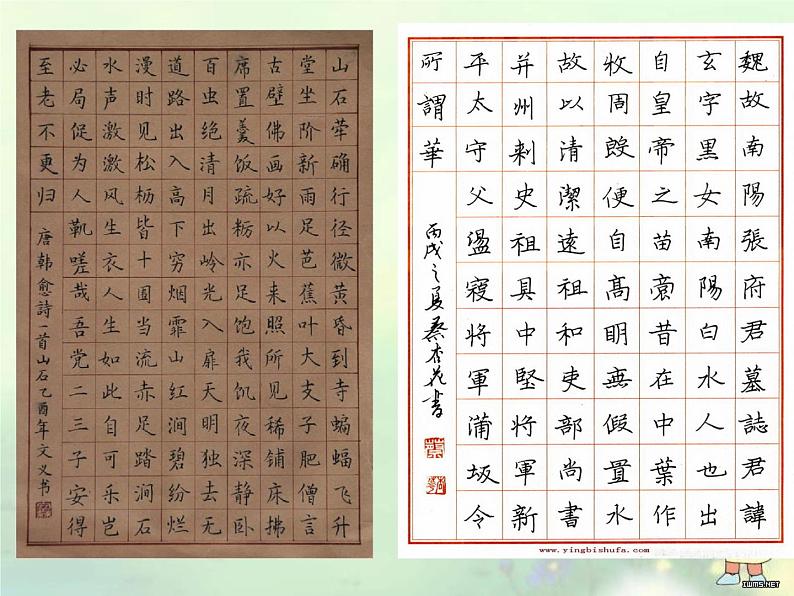 山石荦确行径微黄昏到寺蝙蝠飞升
堂坐阶新雨足芭蕉叶大支子肥僧言
古壁佛画好以火来照所见稀铺床拂
席置羹饭疏粝亦足饱我饥夜深静卧
百虫绝清月出岭光入扉天明独去无
道路出入高下穷烟霏山红涧碧纷烂
漫时见松枥皆十围当流赤足踏涧石
水声激激风生衣人生如此自可乐岂
必局促为人鞿嗟哉吾党二三子安得
至老不更归
唐韩愈詩一首山石乙酉年文义书
魏故南陽張府君墓誌君諱
玄字黑女南陽白水人也出
自皇帝之苗裔昔在中葉作
牧周殷便自高明無假置水
故以清潔遠祖和吏部尚書
并州刺史祖具中堅將軍新
平太守父盪寇將軍蒲坂令
所謂華
丙戌之夏蔡杏花書
www.yingbishufa.com
IWMS.NET